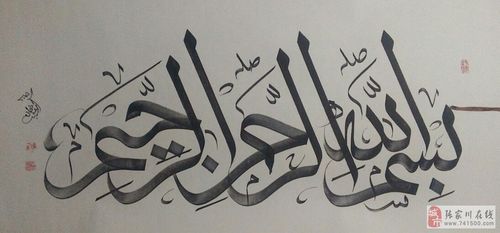 بِسْمِ اللّٰهِ الرَّحْمٰنِ الرَّحِيْمِ
张家川在线
www.741500.com